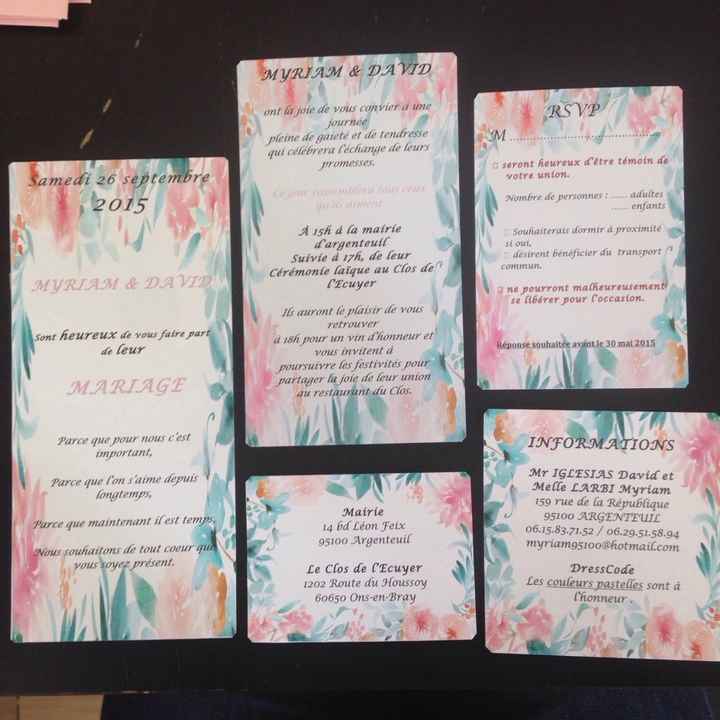 Samedi 26 septembre
2015
MYRIAM & DAVID
Sont heureux de vous faire part
de leur
MARIAGE
Parce que pour nous c'est
important,
Parce que l'on s'aime depuis
longtemps,
Parce que maintenant il est temps,
Nous souhaitons de tout coeur que
vous soyez présent.
MYRIAM & DAVID
ont la joie de vous convier à une
journée
pleine de gaieté et de tendresse
qui célèbrera l'échange de leurs
promesses.
Ce jour rassemblera tous ceux
qu'ils aiment
À 15h à la mairie
d'argenteuil
Suivie à 17h, de leur
Cérémonie laïque au Clos de
l'Ecuyer
Ils auront le plaisir de vous
retrouver
à 18h pour un vin d'honneur et
vous invitent à
poursuivre les festivités pour
partager la joie de leur union
au restaurant du Clos.
Mairie
14 bd Léon Feix
95100 Argenteuil
Le Clos de l'Ecuyer
1202 Route du Houssoy
60650 Ons-en-Bray
RSVP
M ..........................................
□ seront heureux d'être témoin de
votre union.
Nombre de personnes : ...... adultes
...... enfants
□ Souhaiterais dormir à proximité
si oui,
□ désirent bénéficier du transport
commun.
□ ne pourront malheureusement
se libérer pour l'occasion.
Réponse souhaitée avant le 30 mai 2015
INFORMATIONS
Mr IGLESIAS David et
Melle LARBI Myriam
159 rue de la République
95100 ARGENTEUIL
06.15.83.71.52 / 06.29.51.58.94
myriam95100@hotmail.com
DressCode
Les couleurs pastelles sont à
l'honneur .